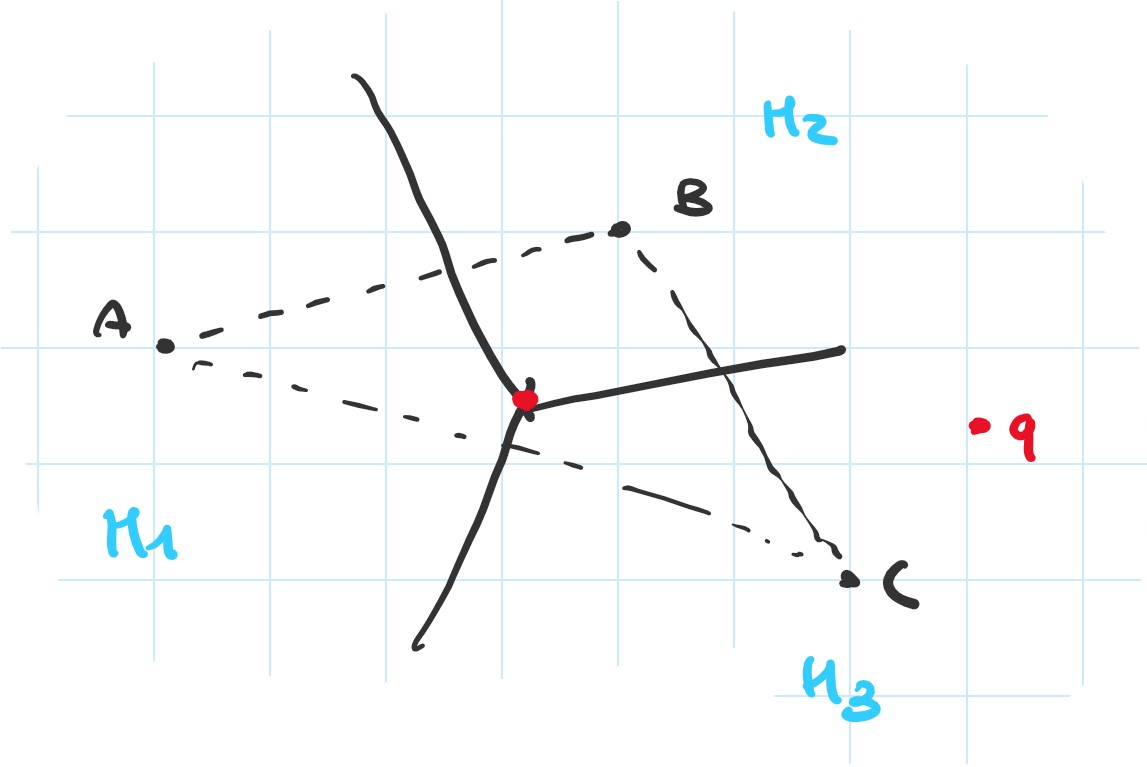 H2
B
A
q
H1
C
H3